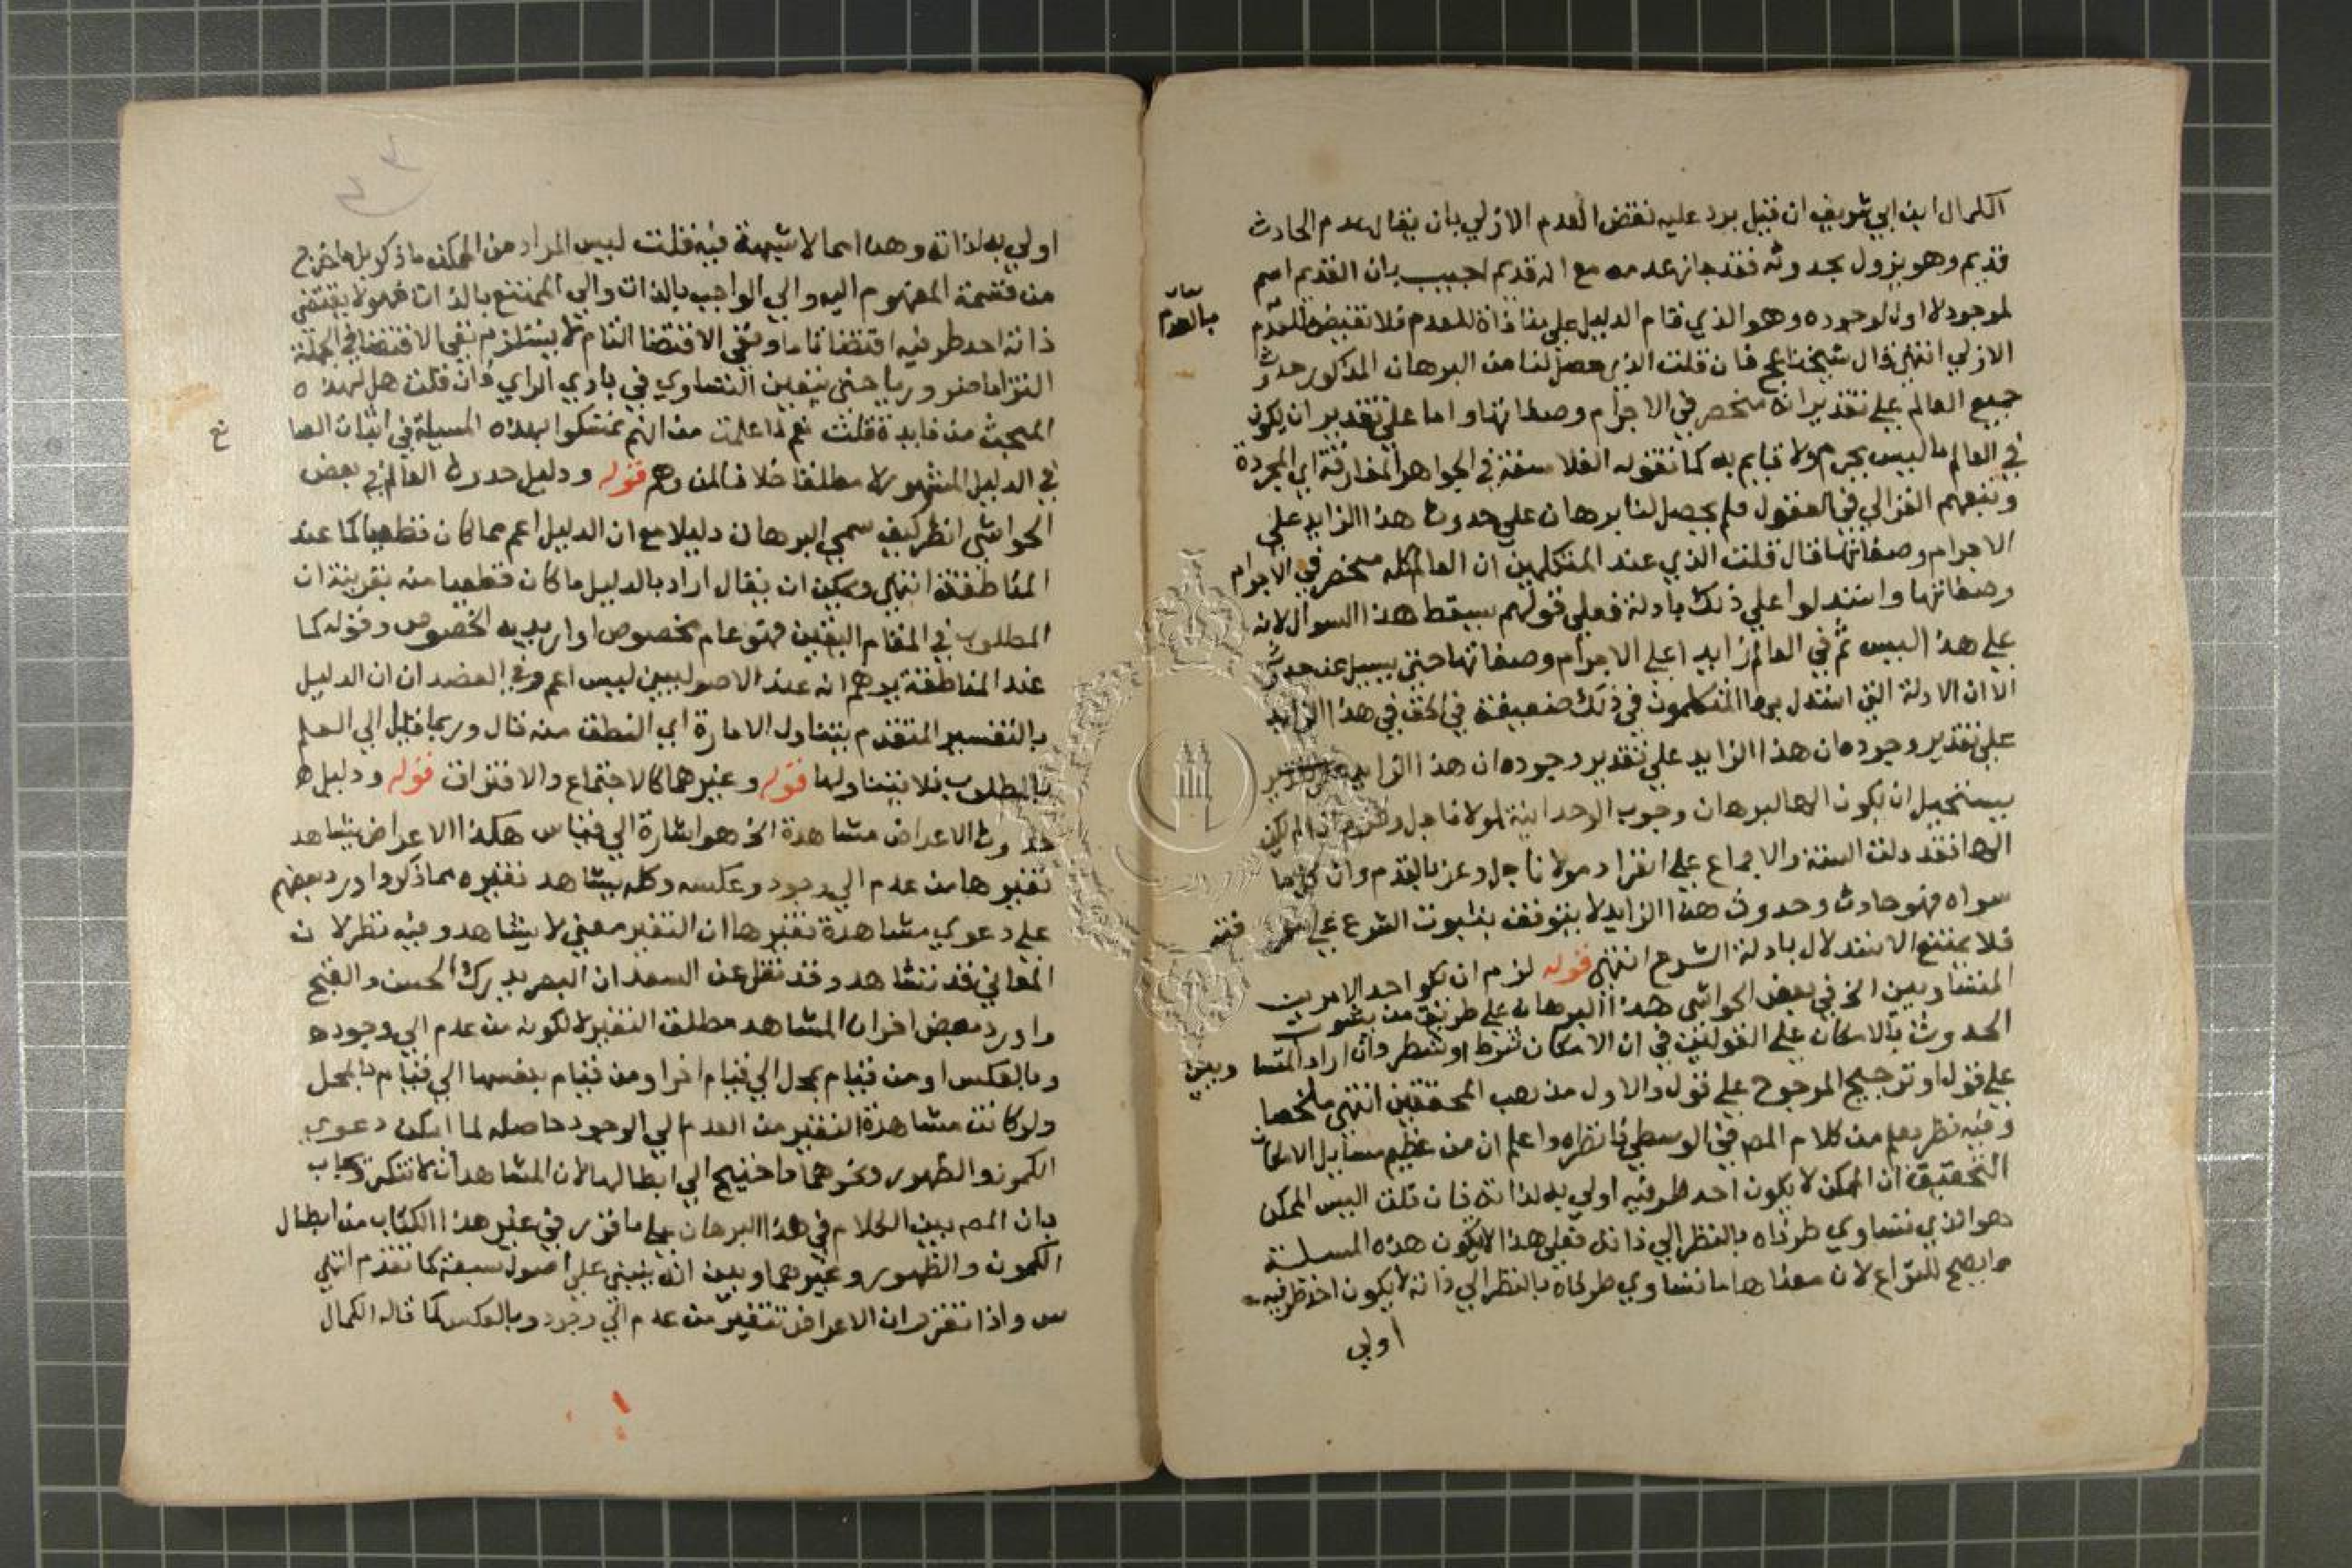 الكمال ابن ابي شريف ان قيل يرد عليه نقض العدم الازلي بان يقال عدم الحادث
قديم وهو يزول بحدوثه فقد جاز عدمه مع انه قديم اجيب بان القديم اسم
لموجود لا اول لوجوده وهو الذي قام الدليل على منافاة للعدم فلا نقيض للعدم
بيان بالعدم
الازلي انتهى قال شيخنا عج فان قلت الذي حصل لنا من البرهان المذكور حدوث
جميع العالم على تقدير انه منحصر في الاجرام وصفاتها واما على تقدير ان يكون
في العالم ما ليس بجرم ولا قايم به كما تقوله الفلاسفة في الجواهر المفارقة اي المجردة
وتبعهم الغزالي في العقول فلم يحصل لنا برهان على حدوث هذا الزايد على
الاجرام وصفاتها قال قلت الذي عند المتكلمين ان العالم كله منحصر في الاجرام
وصفاتها واستدلوا على ذلك بادلة فعلى قولهم يسقط هذا السوال لانه
على هذا ليس ثم في العالم زايد على الاجرام وصفاتها حتى يسيل عن حدوث
الا ان الادلة التي استدل بها المتكلمون في ذلك ضعيفة في الحق في هذا الزايد
على تقدير وجوده ان هذا الزايد على تقدير وجوده ان هذا الزايد
يستحيل ان يكون الها لبرهان وجوب الوحدانية لمولانا جل وعز واذا لم يكن
الها فقد دلت السنة والاجماع على انفراد مولانا جل وعز بالقدم وان كل ما
سواه فهو حادث وحدوث هذا الزايد لا يتوقف بثبوت الشرع على معرفته
فلا يمتنع الاستدلال بادلة الشرع انتهى قوله لزم ان يكو احد الامرين
المتساويين الخ في بعض الحواشي هذا البرهان على طريق من يثبت
الحدوث بالامكان على القولين في ان الامكان شرط او شطر وان اراد المتساويين
على قول او ترجيح المرجوح على قول والاول مذهب المحققين انتهى ملخصا
وفيه نظر يعلم من كلام المص في الوسطى فانظره واعلم ان من عظيم مسايل الامكان
التحقيق ان الممكن لا يكون احد طرفيه اولى به لذاته فان قلت اليس الممكن
هو الذي تساوي طرفاه بالنظر الى ذاته فعلى هذا لا يكون هذه المسلة
ما يصح للنزاع لان معناها ما تساوي طرفاه بالنظر الى ذاته لا يكون احد طرفيه
اولى
اولى به لذاته وهذا مما لا شبهة فيه قلت ليس المراد من الممكن ما ذكر بل ما خرج
من قسمة المفهوم اليه والى الواجب بالذات والى الممتنع بالذات فهو لا يقتضي
ذاته احد طرفيه اقتضا تاما ونفي الاقتضا التام لا يستلزم نفي الاقتضا في الجملة
التزاما ضروريا حتى يتعين التساوي في بادي الراي فان قلت هل لهذه
المبحث من فايدة قلت نعم لما علمت من انهم تمسكوا بهذه المسيلة في اثبات الصا
نع
في الدليل المشهور لا مطلقا خلافا لمن وهم قوله ودليل حدوث العالم في بعض
الحواشي انظر كيف سمي البرهان دليلا مع ان الدليل اعم مما كان قطعيا كما عند
المناطقة انتهى ويمكن ان يقال اراد بالدليل ما كان قطعيا منه بقرينة ان
المطلوب في المقام اليقين فهو عام مخصوص او اريد به الخصوص وقوله كما
عند المناطقة يوهم انه عند الاصوليين ليس اعم وفي العضد ان ان الدليل
بالتفسير المتقدم يتناول الامارة اي النطق منه قال وربما قيل الى العلم
بالمطلوب فلا يتناولها قوله وغيرهما كالاجتماع والافتراق قوله ودليل ه
حدوث الاعراض مشاهدة الخ هو اشارة الى قياس هكذا الاعراض يشاهد
تغيرها من عدم الى وجود وعكسه وكله يشاهد تغيره بما ذكر واورد بعضهم
على دعوي مشاهدة تغيرها ان التغير معنى لا يشاهد وفيه نظر لان
المعاني قد تشاهد وقد نقل عن السعد ان البصر يدرك الحسن والقبح
واورد بعض اخر ان المشاهد مطلق التغير لا لكونه من عدم الى وجوده
وبالعكس او من قيام بمحل الى قيام اخر او من قيام بنفسها الى قيام بالمحل
ولو كانت مشاهدة التغير من العدم الى الوجود حاصله لما امكن دعوي
الكمون والظهور ونحوهما ما احتيج الى ابطالها لان المشاهدات لا تنكر واجاب
بان المص بين الكلام في هذا البرهان على ما قرر في غير هذا الكتاب من ابطال
الكمون والظهور وغيرهما وبين انه ينبني على اصول سبعة كما تقدم انتهى
س واذا تقرر ان الاعراض تتغير من عدم الى وجود وبالعكس كما قاله الكمال